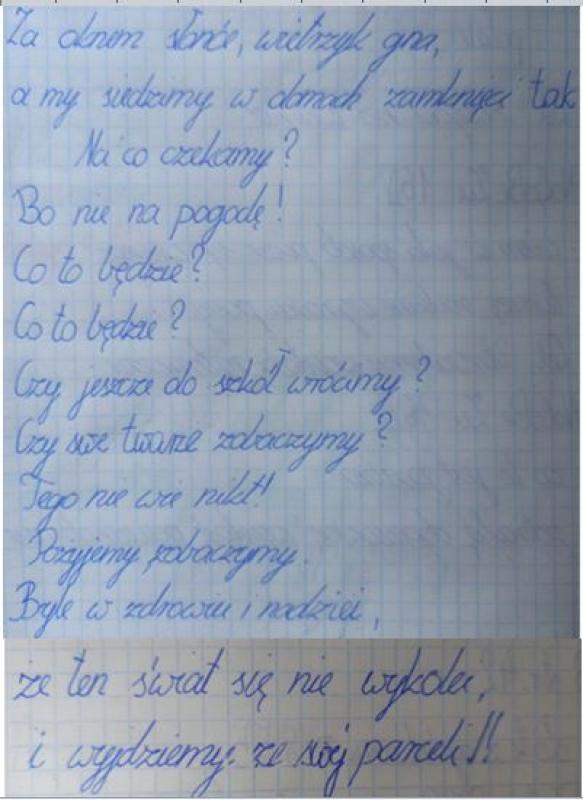 Za oknem słońce, wietrzyk gna,
a my siedzimy w domach zamknięci tak
Na co czekamy?
Bo nie na pogodę!
Co to będzie?
Co to będzie?
Czy jeszcze do szkół wrócimy?
Czy swe twarze zobaczymy?
Tego nie wie nikt!
Pożyjemy zobaczymy.
Byle w zdrowiu i nadziei,
że ten świat się nie wykolei,
i wyjdziemy ze swej parceli!!